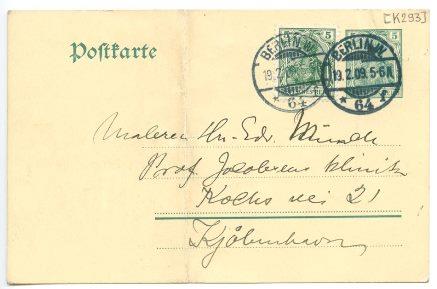 [K293]
Postkarte
5 5
BERLIN.W. BERLIN.W.
19.2. 19.2.09.5-6N.
* 64 * 64 f
Maleren Hr. Edv. Munch
Prof Jacobsens klinik
Kochs vei 21
Kjöbenhavn